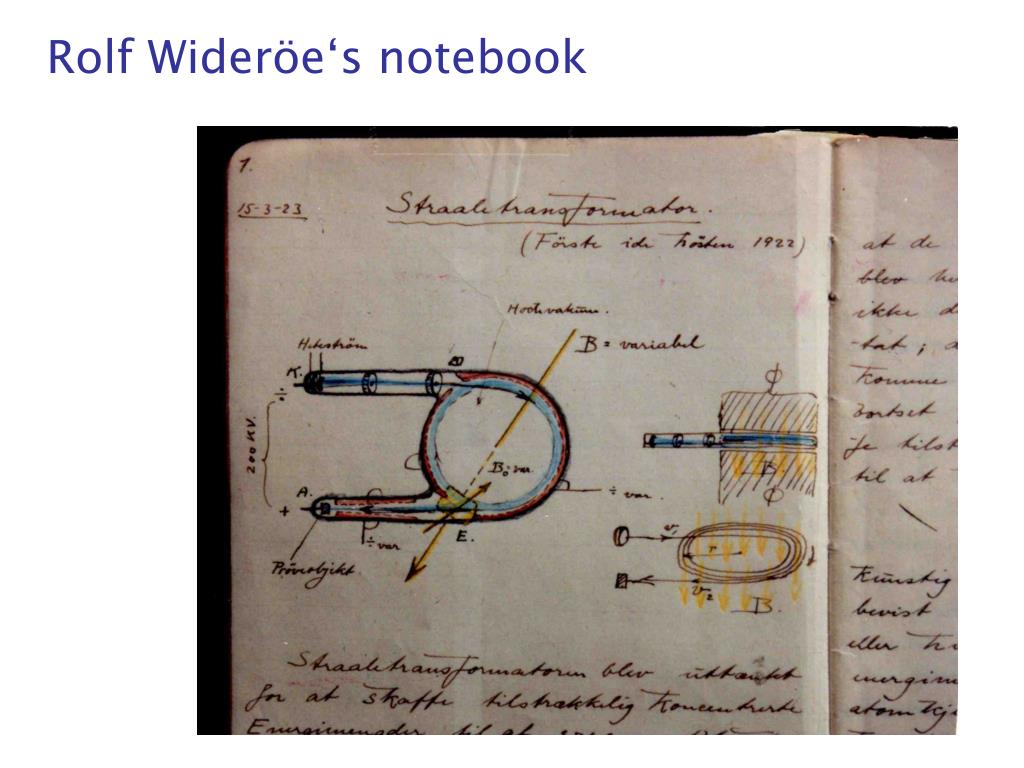 Rolf Wideröe‘s notebook
1.
15-3-23
Straaletransformator.
(Förste ide hösten 1922)
Hochvakuum.
B = variabel
Heteström
K.
÷
200 KV.
B₀ = var.
A.
+
÷ var.
÷ var
E.
Pröveobjekt
Φ
B
Φ
v₁
r
v₂
B.
Straaletransformatoren blev uttænkt
for at skaffe tilstrækkelig koncentrerte
Energimengder til at
at de
blev
ikke
-tat ;
komme
bortset
je
til at
kunstig
bevist
eller